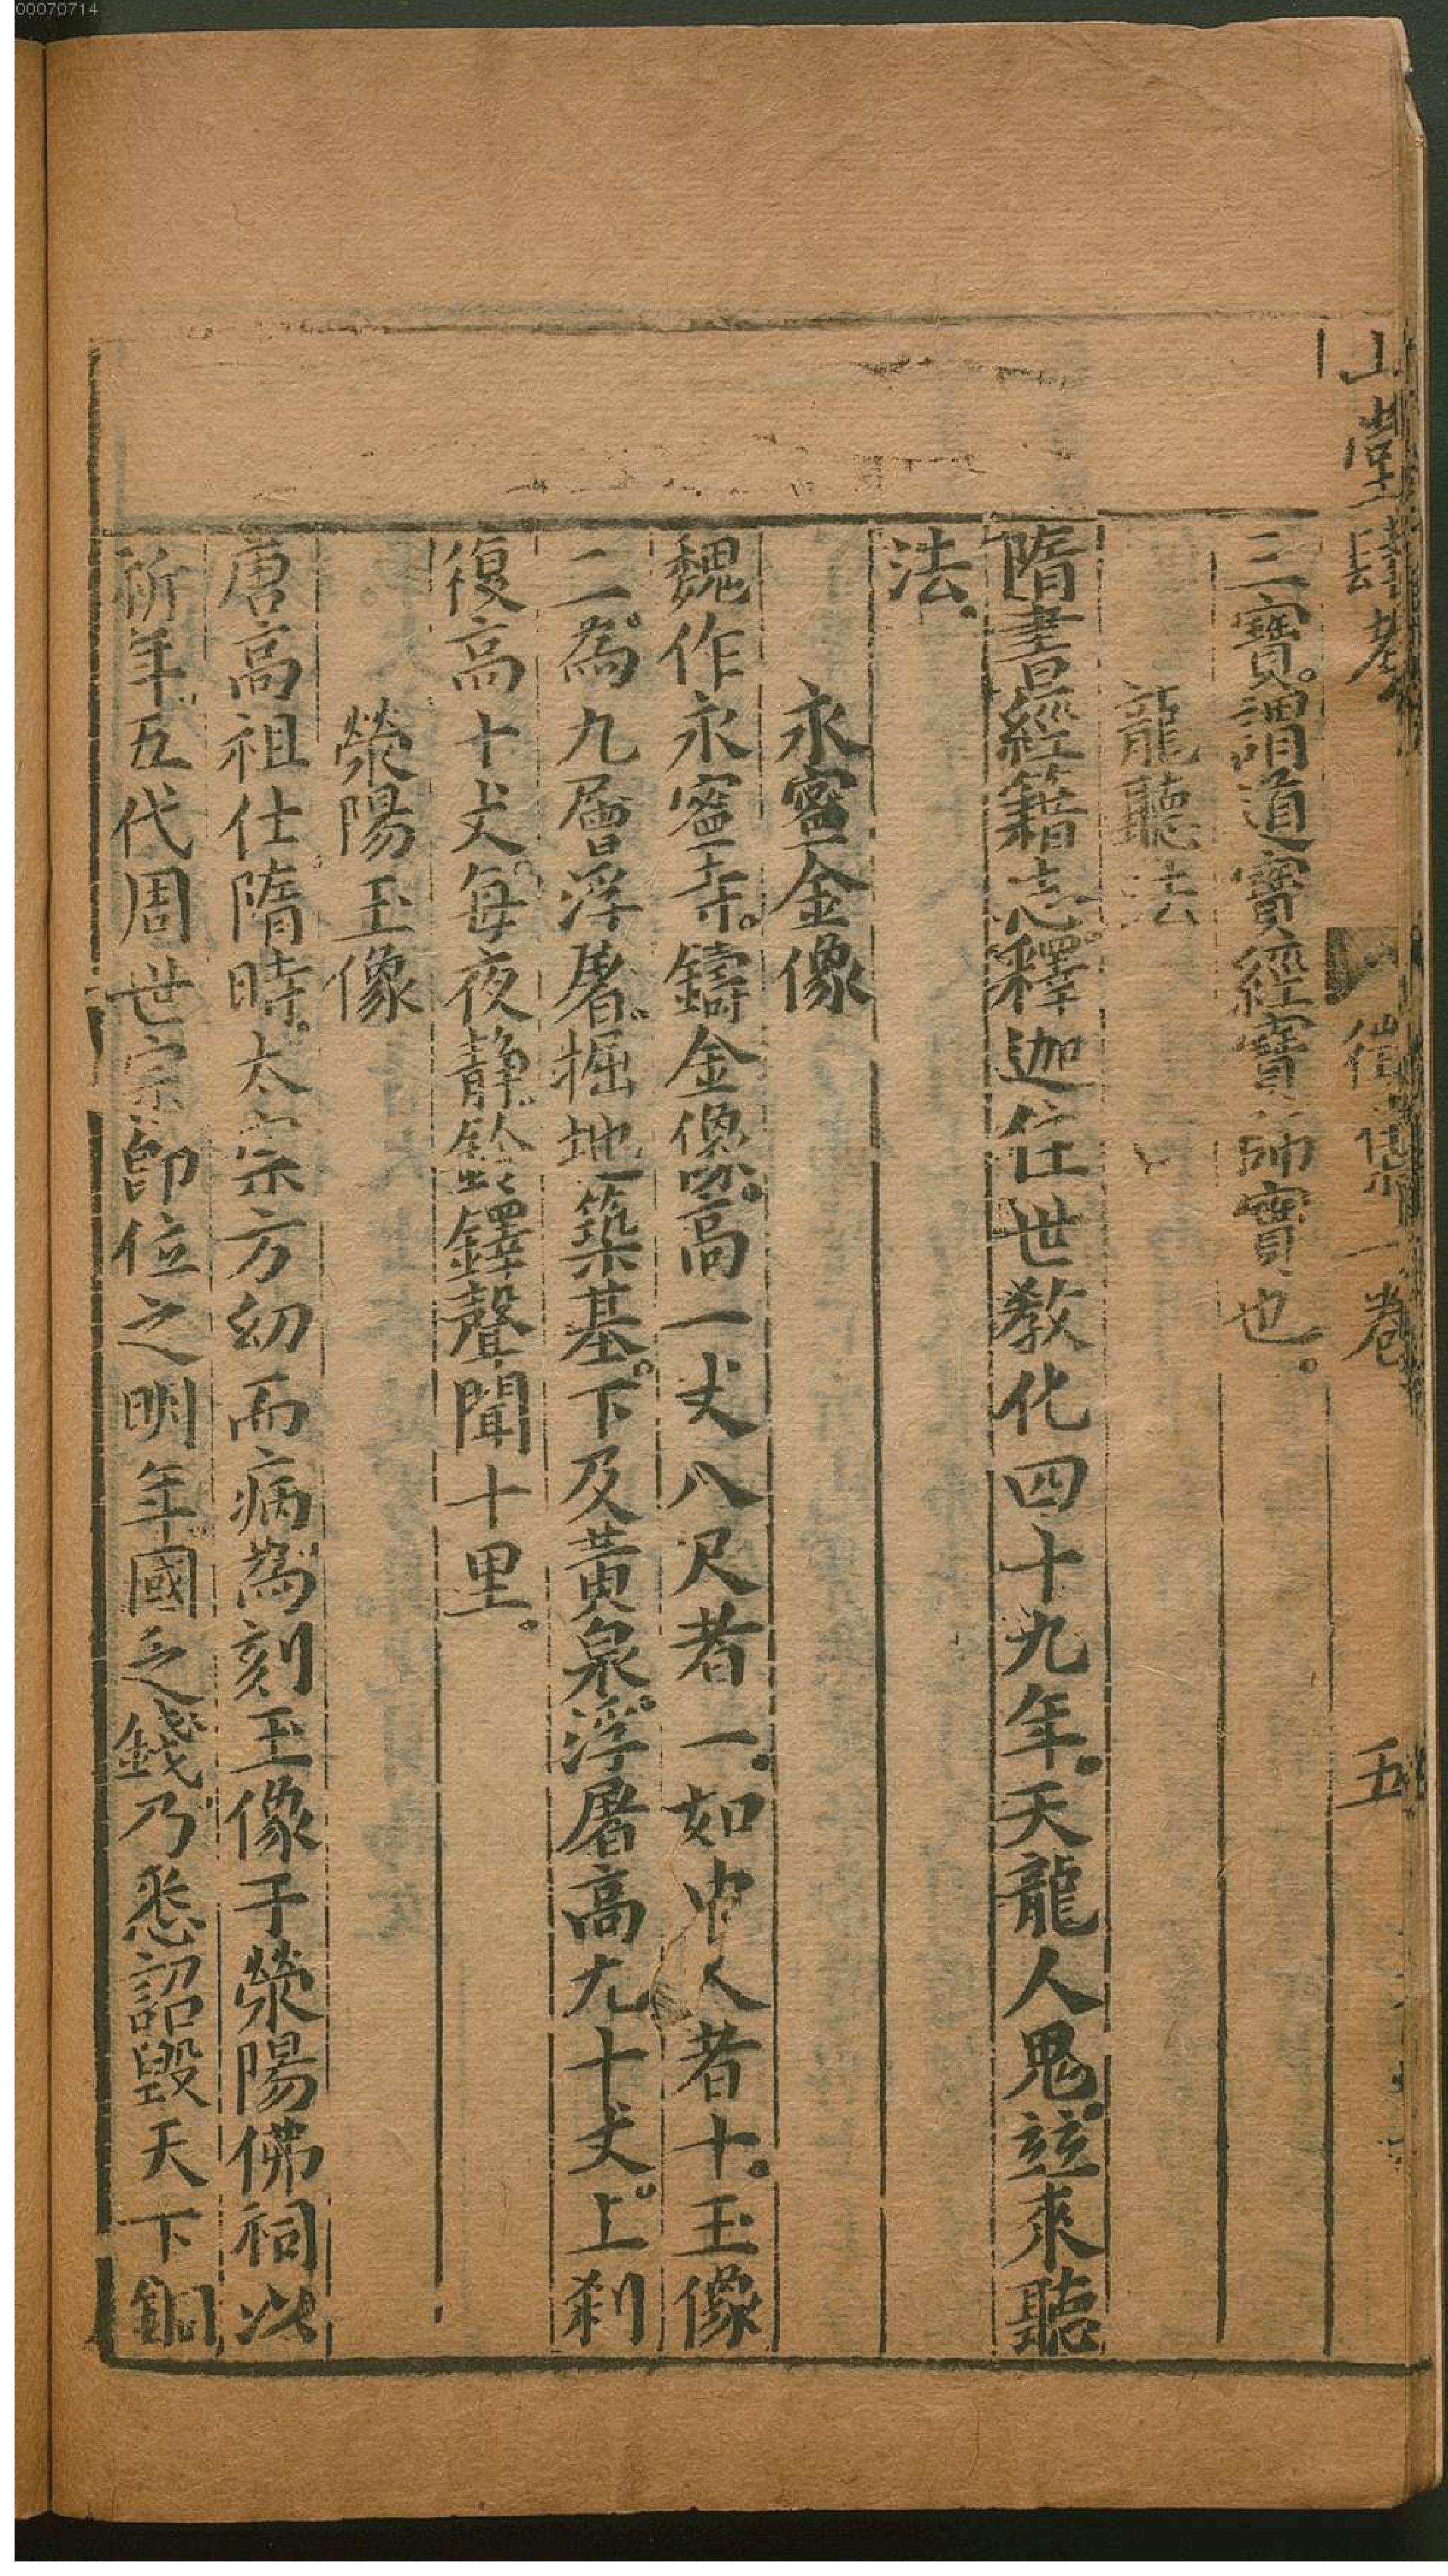 00070714
山堂肆考 徵集一卷 五
三寶謂道寶經寶師寶也。
龍聽法
隋書經籍志。釋迦在世教化四十九年。天龍人鬼並來聽
法。
永寧金像
魏作永寧寺。鑄金像。高一丈八尺者一。如中人者十。玉像
二。為九層浮屠。掘地築基。下及黃泉。浮屠高九十丈。上剎
復高十丈。每夜靜。鈴鐸聲聞十里。
滎陽玉像
唐高祖仕隋時。太宗方幼而病。為刻玉像于滎陽佛祠以
祈年。五代周世宗即位之明年。國乏錢。乃悉詔毀天下銅